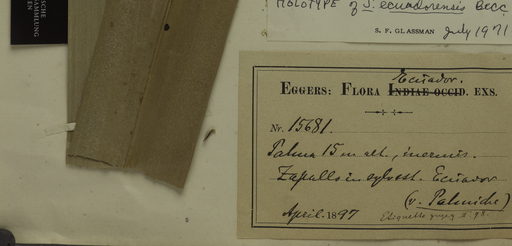 ISCHE
SAMMLUNG
EN
HOLOTYPE of S. ecuadorensis Becc
S. F. GLASSMAN July 1971
Ecuador.
EGGERS: FLORA INDIAE OCCID. EXS.
Nr. 15681.
Palma 15 m alt., inermis.
in sylvest. Ecuador
(v. Palmiche)
April. 1897